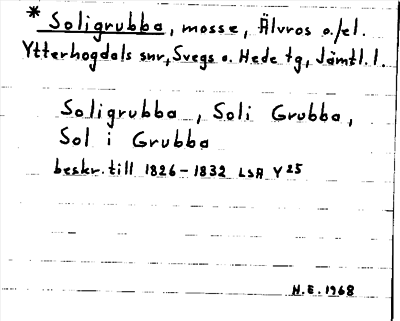 * Soligrubba, mosse, Älvros o./el.
Ytterhogdals snr, Svegs o. Hede tg, Jämtl. l.
Soligrubba, Soli Grubba,
Sol i Grubba
beskr. till 1826-1832 LSA Y25
H.E. 1968